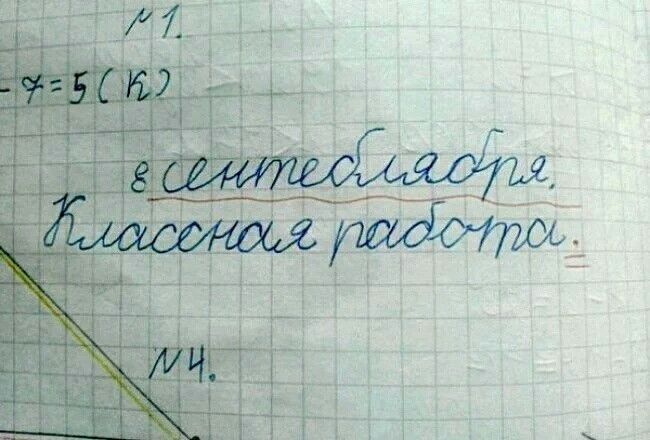 №1.
- 7 = 5 ( К )
8 сентеблября.
Классная работа.
№4.